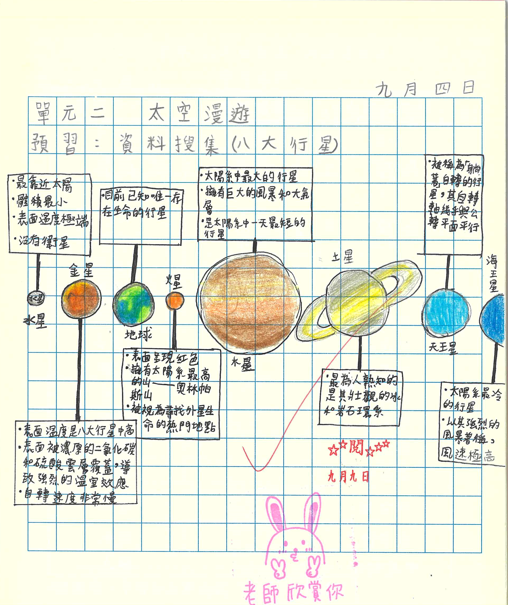 九月四日
單元二 太空漫遊
預習:資料搜集(八大行星)
・最靠近太陽
・體積最小
・表面溫度極端
・沒有衛星
水星
金星
・表面溫度是八大行星中高
・表面被濃厚的二氧化碳
和硫酸雲層覆蓋,導
致強烈的溫室效應
・自轉速度非常慢
・目前已知唯一存
在生命的行星
地球
火星
・表面呈現紅色
・擁有太陽系最高
的山——奧林帕
斯山
・被視為尋找外星生
命的熱門地點
・太陽系中最大的行星
・擁有巨大的風暴和大氣
層
・是太陽系中一天最短的
行星
木星
土星
・最為人熟知的
是其壯觀的冰
和岩石環系
・被稱為「躺
著自轉的行
星,其自轉
軸幾乎與公
轉平面平行
天王星
海王星
・太陽系最冷
的行星
・以其強烈的
風暴著極,
風速極高
閱
九月九日
老師欣賞你